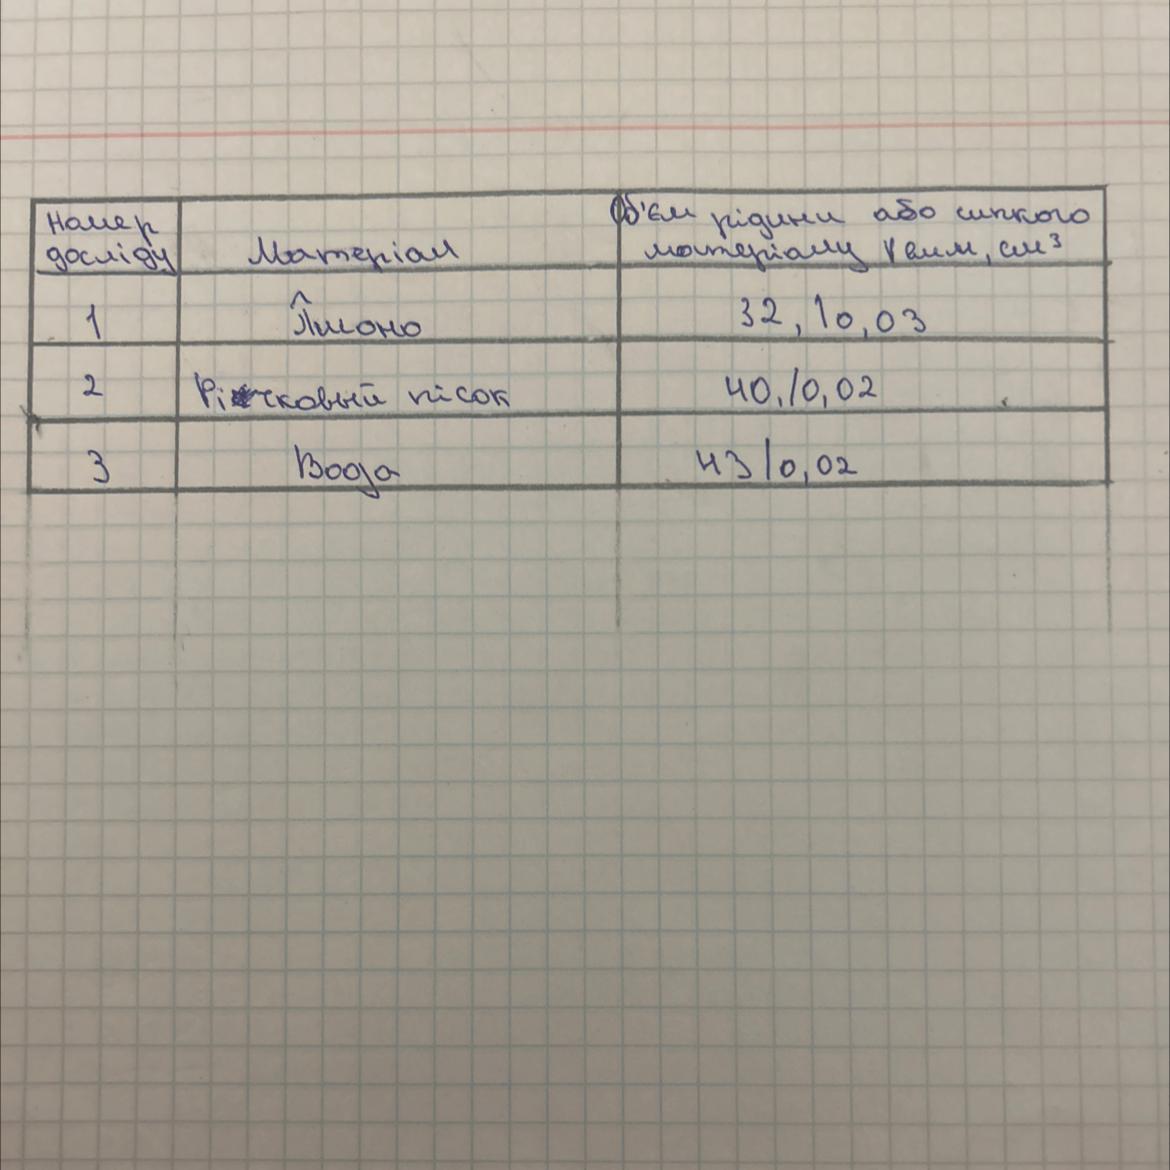 Номер
досліду
Матеріал
Об'єм рідини або сипкого
матеріалу Vвим, см³
1
Пшоно
32, 10,03
2
Річковый пісок
40,10,02
3
Вода
43 10,02